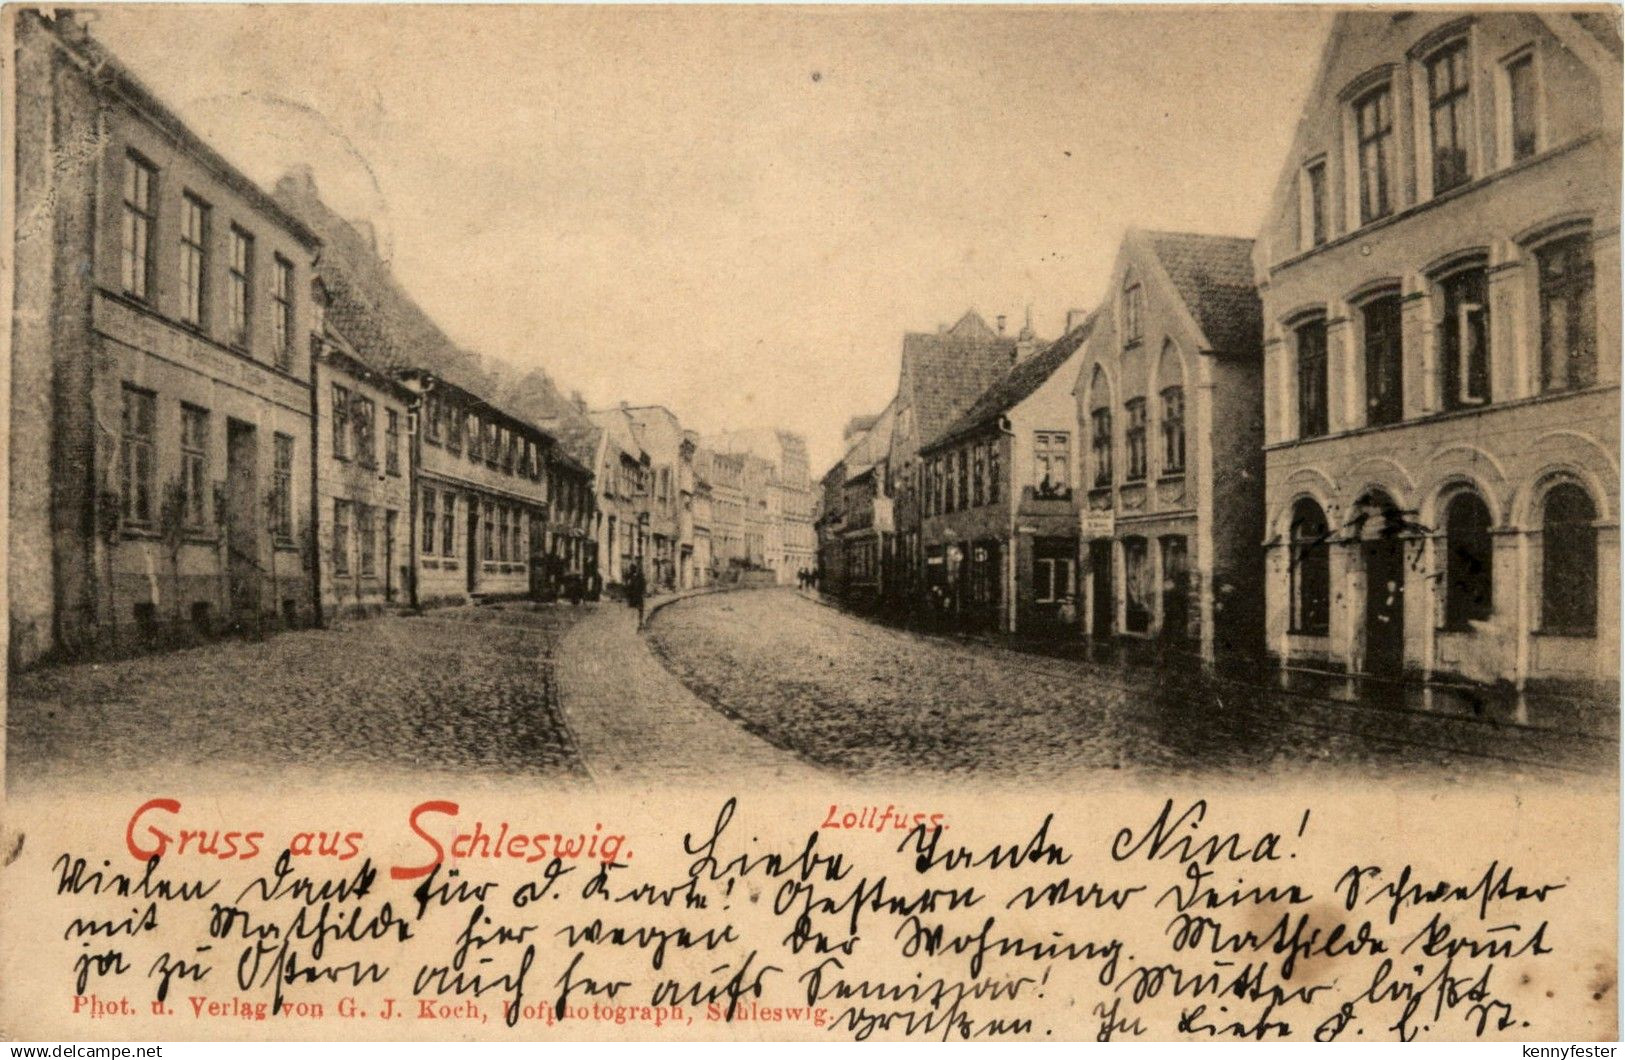 Lollfuss.
Gruss aus Schleswig.
Liebe Tante Nina!
Vielen Dank für d. Karte! Gestern war Deine Schwester
mit Mathilde hier wegen der Wohnung. Mathilde kom̅t
ja zu Ostern auch her aufs Seminar! Mutter läßt
grüßen. In Liebe d. l. St.
Phot. u. Verlag von G. J. Koch, Hofphotograph, Schleswig.
kennyfester